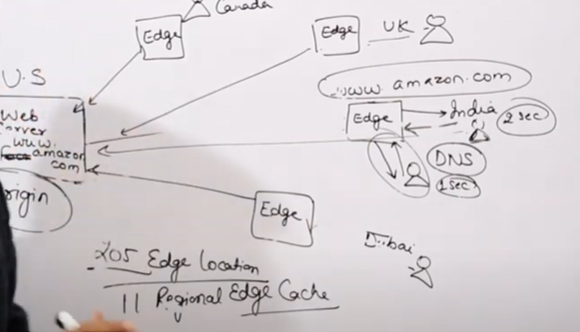 Canada
Edge
Edge
UK
U.S
www.amazon.com
Web
Server
www.
amazon
com
Edge
India
2 sec
DNS
1 sec
Origin
Edge
Dubai
205 Edge Location
11 Regional Edge Cache